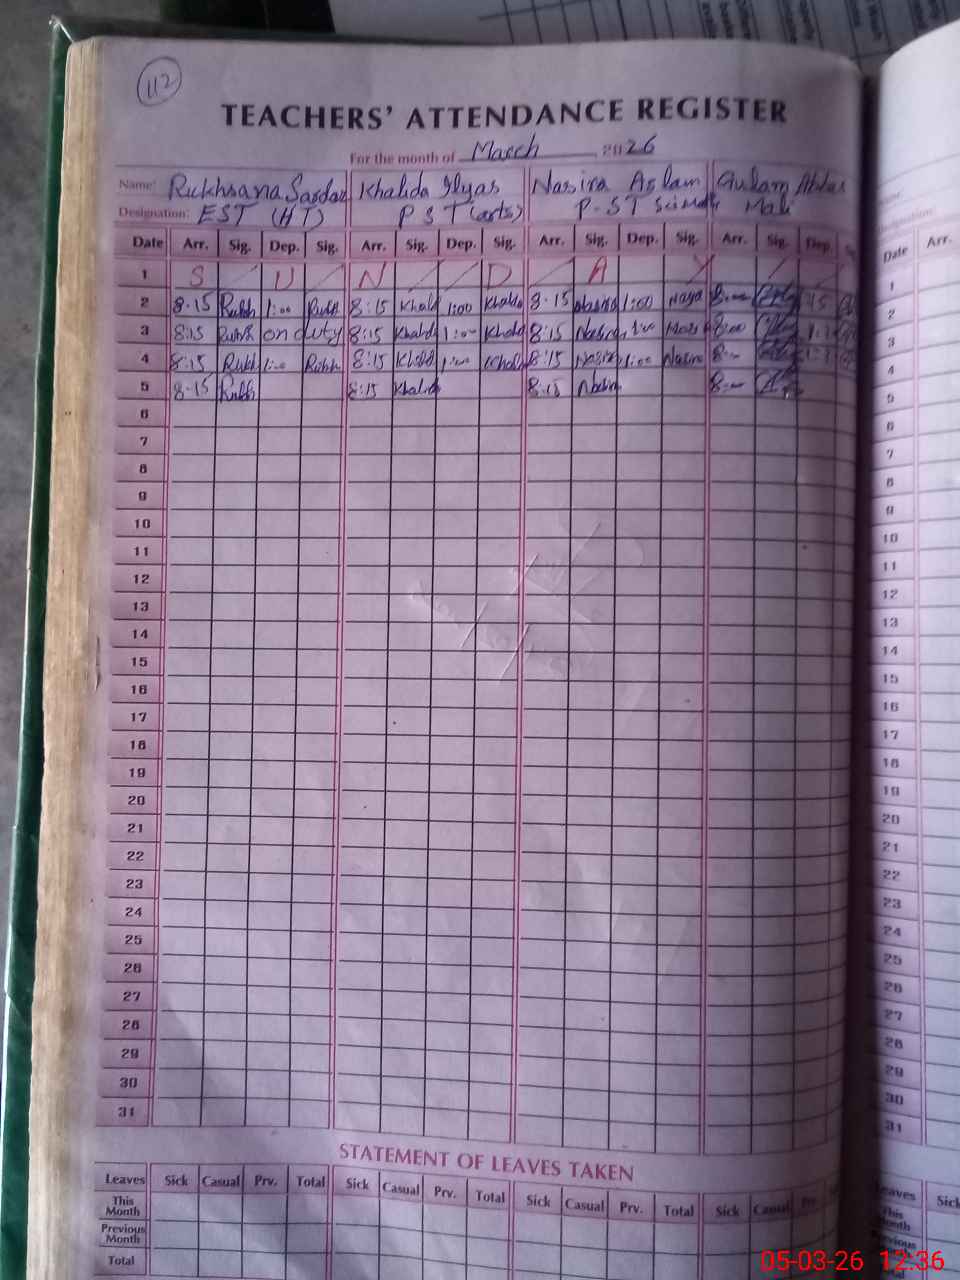 112
TEACHERS' ATTENDANCE REGISTER
For the month of March 2026
Name: Rukhsana Sardar Khalida Ilyas Nasira Aslam Gulam Abbas
Designation: EST (HT) PST (arts) P-ST Mali
Date Arr. Sig. Dep. Sig. Arr. Sig. Dep. Sig. Arr. Sig. Dep. Sig. Arr. Sig. Dep.
1 S U N D A Y
2 8-15 Rukh 1:00 Rukh 8:15 Khalid 1:00 Khalida 8-15 Nasira 1:00
3 8:15 Rukh on duty 8:15 Khalida 1:00 Khalid 8:15 Nasira 1:00 Nasi 8:00
4 8:15 Rukh 1:00 Rukh 8:15 Khalid 1:00 Khali 8:15 Nasira 1:00 Nasira
5 8-15 Rukh 8:15 Khalid 8:15 Nasira
6
7
8
9
10
11
12
13
14
15
16
17
18
19
20
21
22
23
24
25
26
27
28
29
30
31
STATEMENT OF LEAVES TAKEN
Leaves Sick Casual Prv. Total Sick Casual Prv. Total Sick Casual Prv. Total Sick Casual
This Month
Previous Month
Total
Date Arr.
1
2
3
4
5
6
7
8
9
10
11
12
13
14
15
16
17
18
19
20
21
22
23
24
25
26
27
28
29
30
31
Leaves Sick
This Month
Previous
05-03-26 12:36